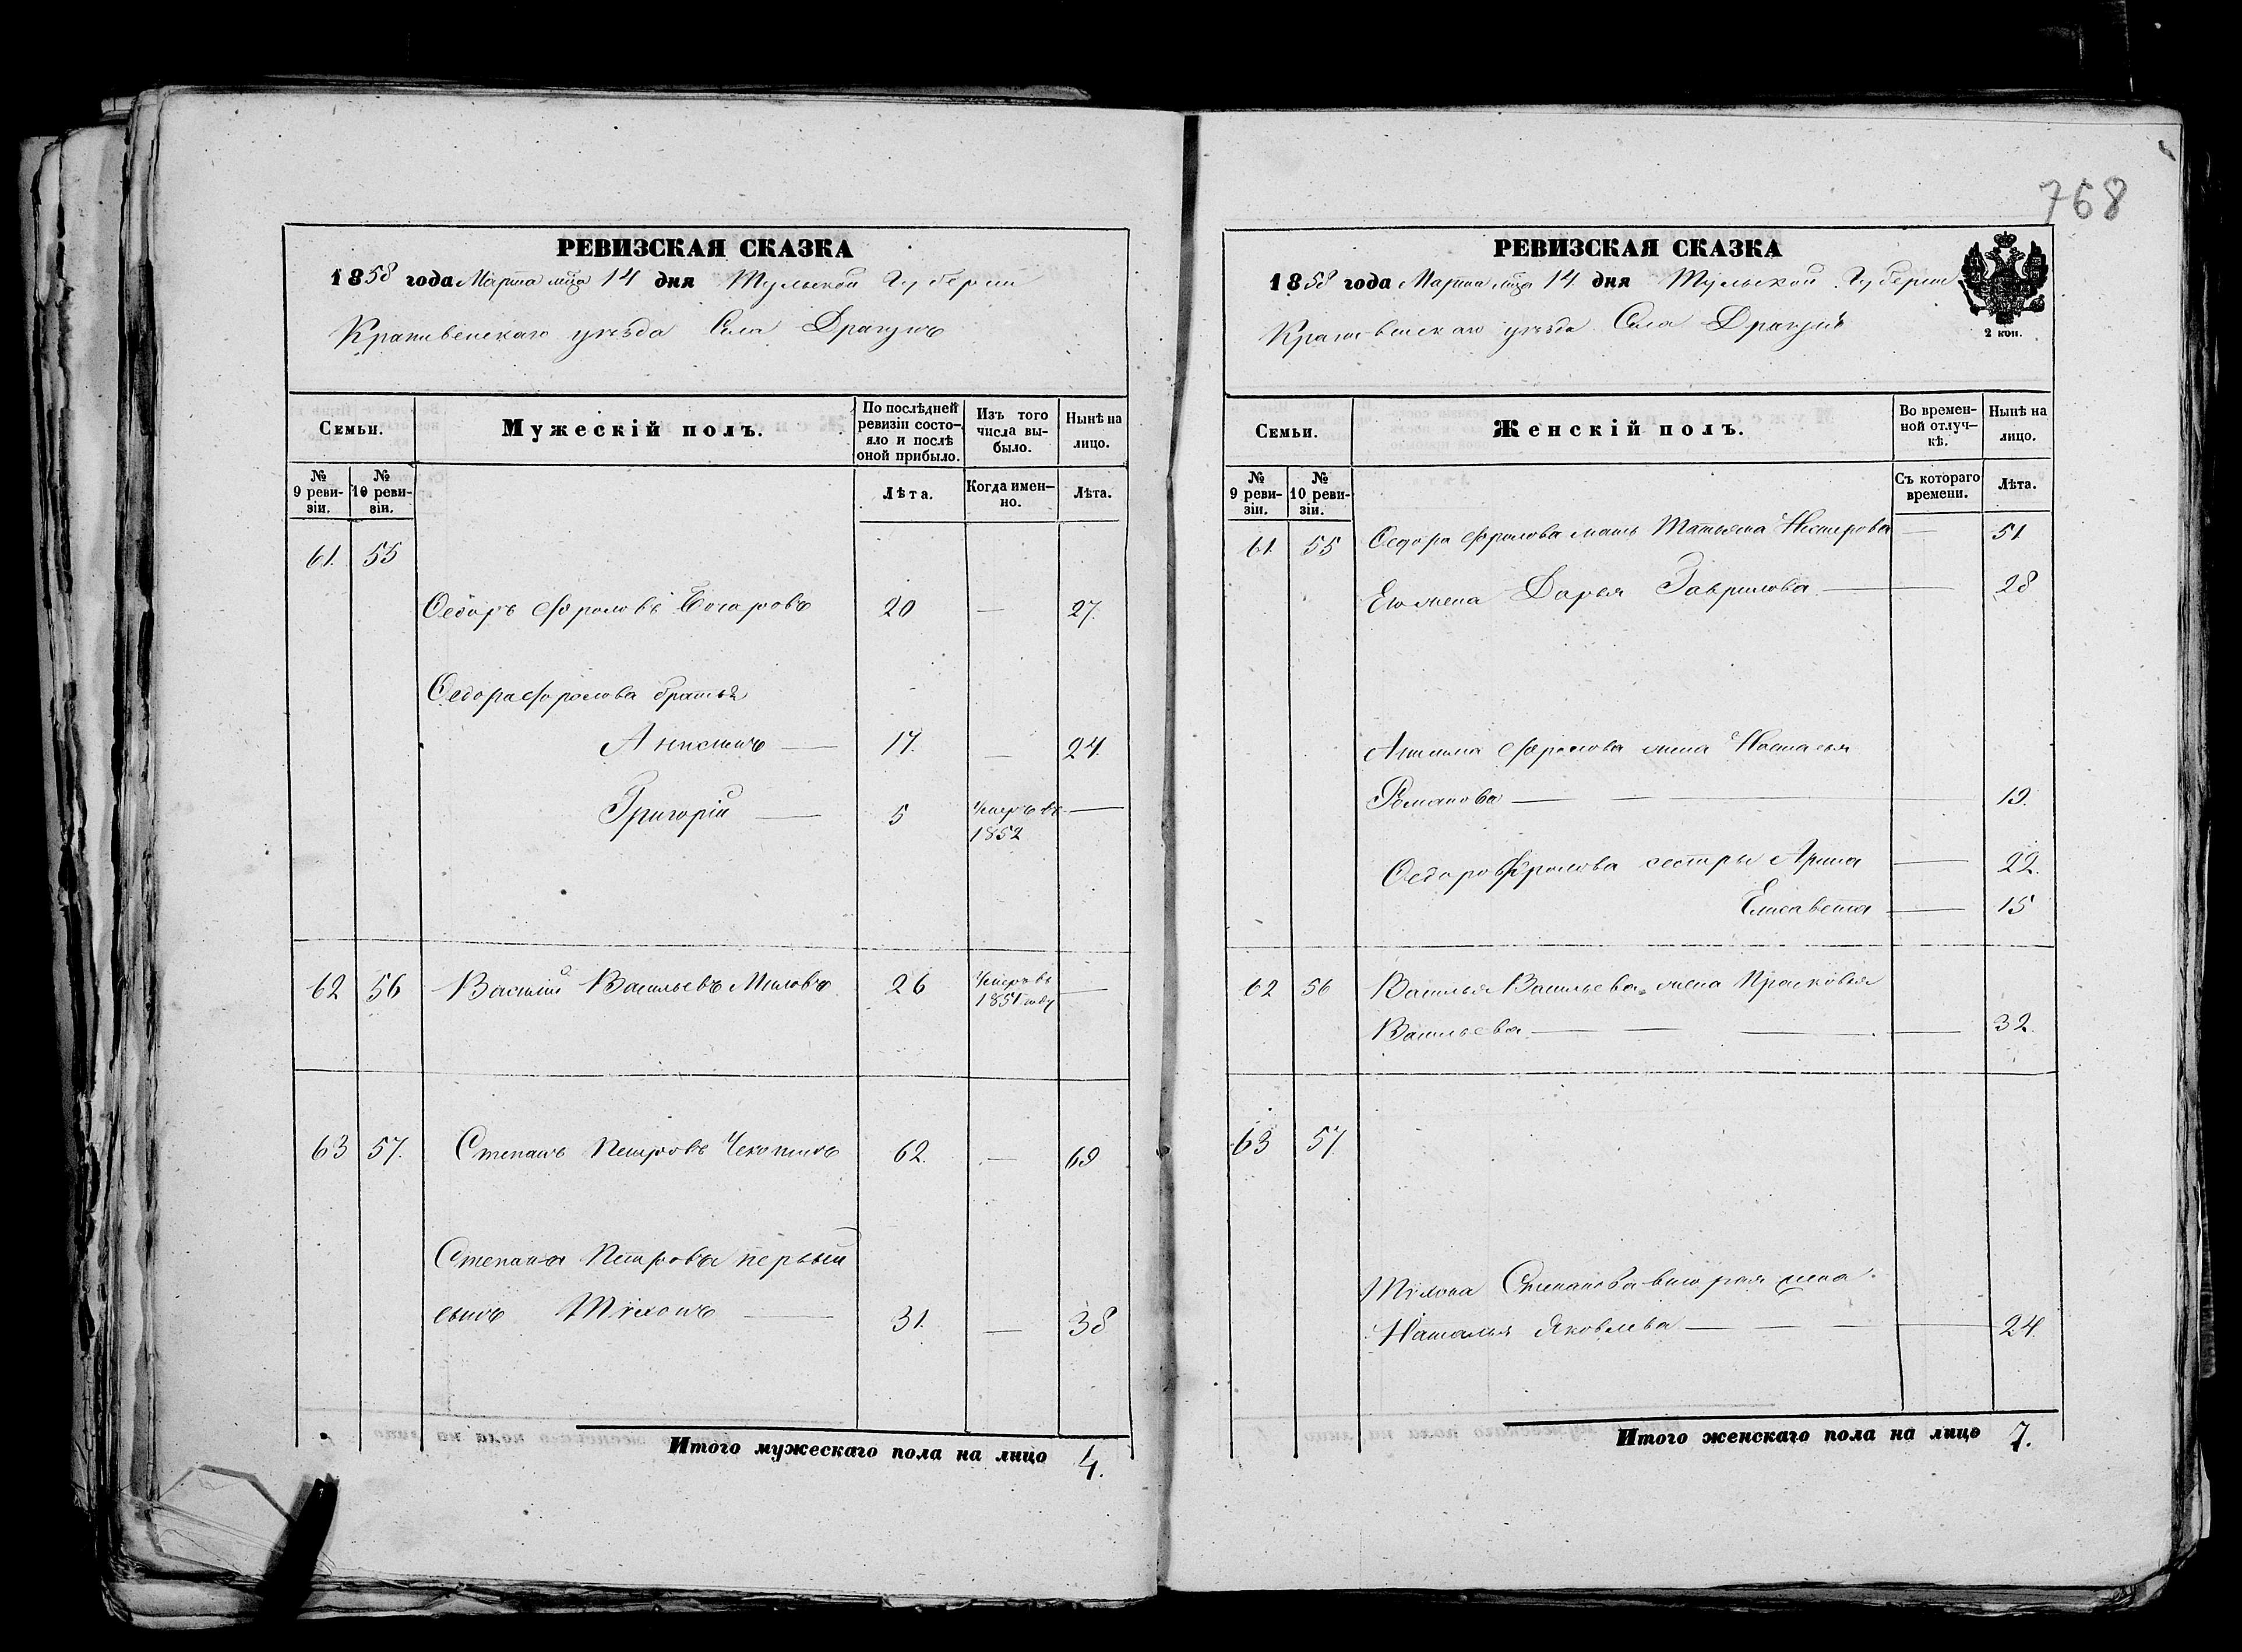 768
РЕВИЗСКАЯ СКАЗКА
1858 года Марта мца 14 дня Тульской Губернии
Крапивенскаго уезда Села Драгунъ
Семьи.
Мужескій полъ.
По послѣдней ревизіи состояло и послѣ оной прибыло.
Изъ того числа выбыло.
Нынѣ на лицо.
№ 9 ревизіи.
№ 10 ревизіи.
Лѣта.
Когда именно.
Лѣта.
61. 55
Ѳедоръ Фроловъ Бочаровъ 20 — 27.
Ѳедора Фролова братья
Анисимъ — 17. — 24.
Григорій — 5 Умеръ въ 1852 —
62 56 Василий Васильевъ Миловъ 26 Умеръ въ 1851 году —
63 57. Степанъ Петровъ 62. — 69
Степана Петрова первый
сынъ Тихонъ — 31. — 38
Итого мужескаго пола на лицо 4.
РЕВИЗСКАЯ СКАЗКА
1858 года Марта мца 14 дня Тульской Губернии
Крапивенскаго уезда Села Драгунъ
2 коп.
Семьи.
Женскій полъ.
Во временной отлучкѣ.
Нынѣ на лицо.
№ 9 ревизіи.
№ 10 ревизіи.
Съ котораго времени.
Лѣта.
61. 55 Ѳедора Фролова мать Татьяна Нестерова — 51
Его жена Дарья Гаврилова — 28
Фролова жена Настасья
Романова — — — 19.
Ѳедора Фролова сестры Арина — 22.
Елисавета — 15
62 56 Василья Васильева жена Прасковья
Васильева — — — 32.
63 57.
Тихона Степанова вторая жена
Наталья Яковлева — — — 24.
Итого женскаго пола на лицо 7.